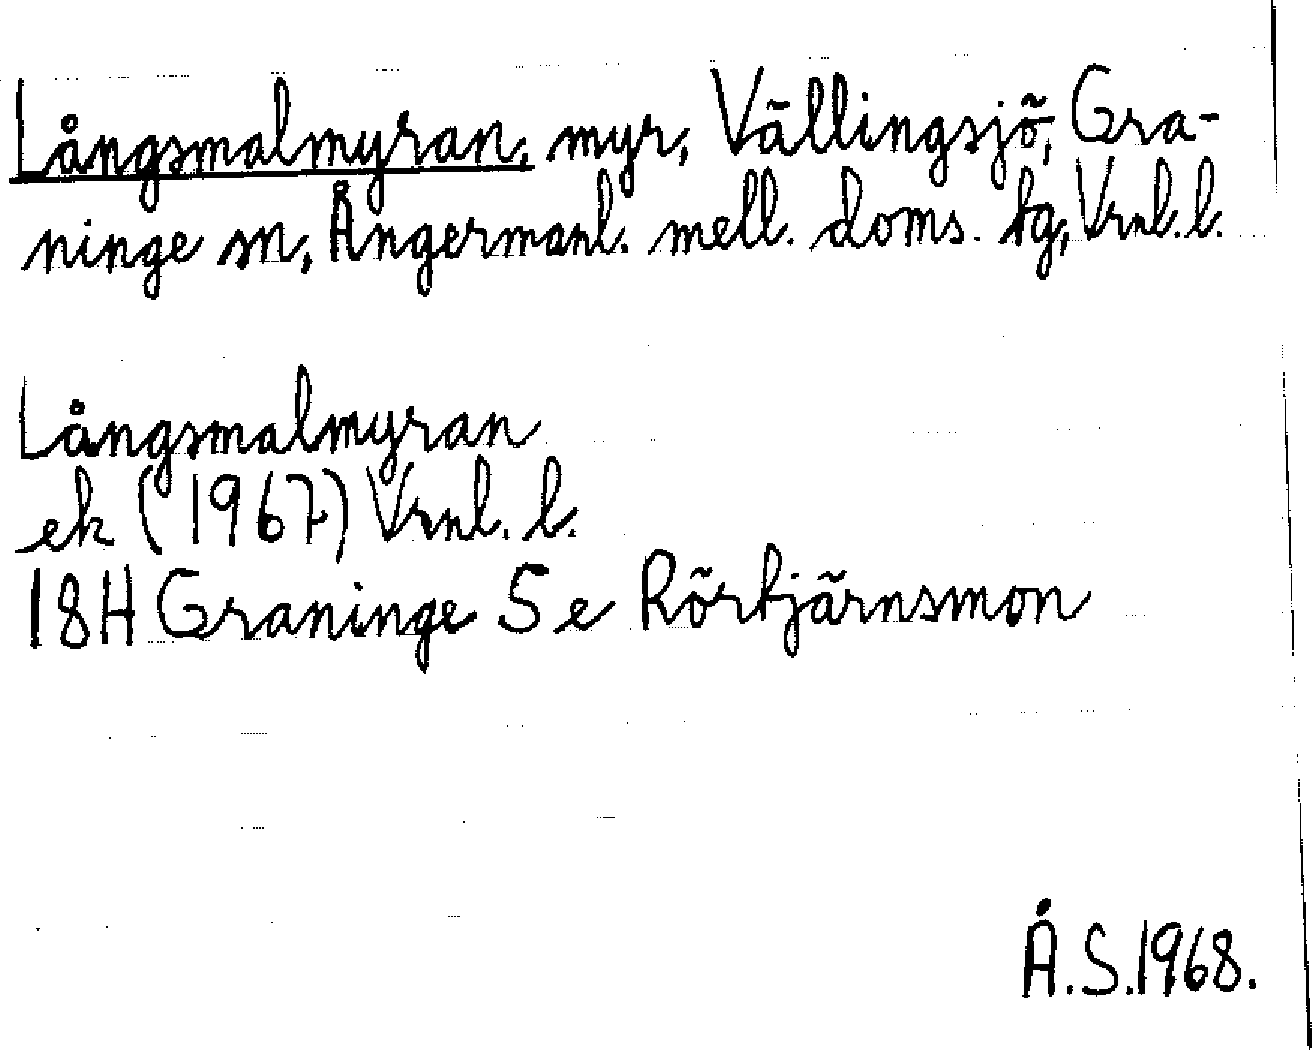 Långsmalmyran, myr, Vällingsjö, Gra-
ninge sn, Ångermanl. mell. doms. tg, Vrnl. l.
Långsmalmyran
ek (1967) Vrnl. l.
18H Graninge 5 e Rörtjärnsmon
Å.S.1968.